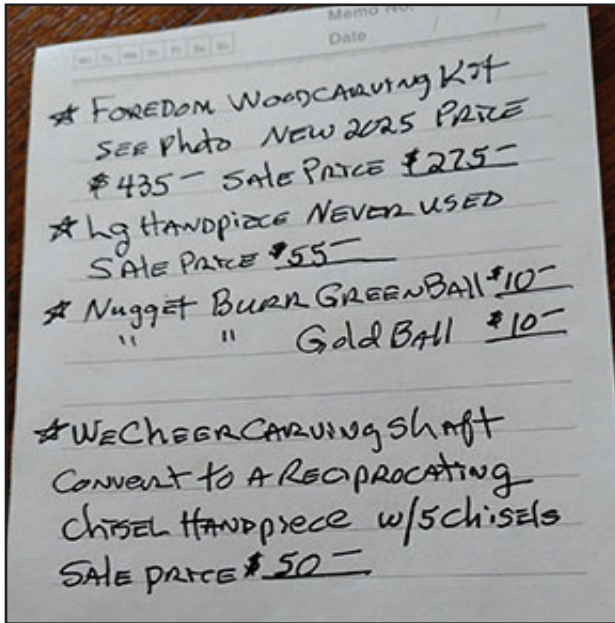 Memo No.
Date / /
Mo Tu We Th Fr Sa Su
☆ FOREDOM WOODCARVING KIT
SEE PHOTO NEW 2025 PRICE
$435— SALE PRICE $275—
☆ Lg HANDPIECE NEVER USED
SALE PRICE $55—
☆ Nugget BURR GREEN BALL $10—
" " Gold BALL $10—
☆ WECHEER CARVING SHAFT
CONVERT TO A RECIPROCATING
CHISEL HANDPIECE W/5 CHISELS
SALE PRICE $50—